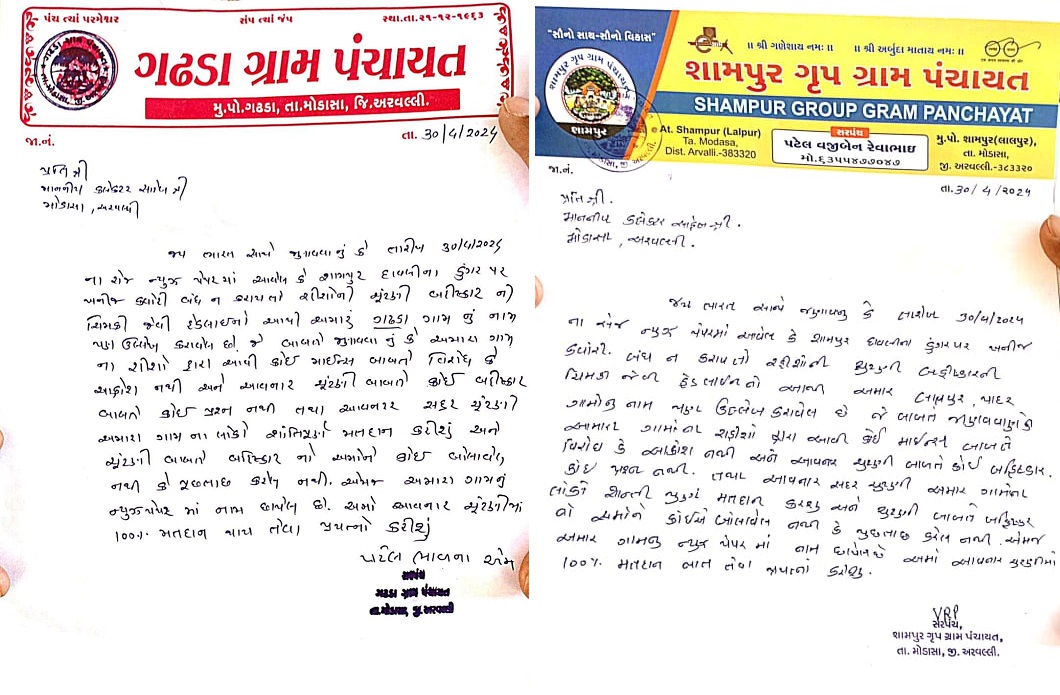 પંચ ત્યાં પરમેશ્વર
સંપ ત્યાં જંપ
સ્થા.તા.૨૧-૧૨-૧૯૬૩
ગઢડા ગ્રામ પંચાયત
મુ.પો.ગઢડા, તા.મોડાસા, જિ.અરવલ્લી.
જા.નં.
તા. 30/4/2024
પ્રતિ શ્રી
માનનીય કલેક્ટર સાહેબ શ્રી
મોડાસા, અરવલ્લી
જય ભારત સાથે જણાવવાનું કે તારીખ 30/4/2024
ના રોજ ન્યુઝ પેપરમાં આવેલ કે શામપુર દાવલીના ડુંગર પર
ખનીજ ક્વોરી બંધ ન કરાય તો ચૂંટણી બહિષ્કાર ની
ચિમકી જેવી હેડલાઇનો આપી અમારું ગઢડા ગામ નું નામ
પણ ઉલ્લેખ કરાવેલ છે. જે બાબતે જણાવવાનું કે અમારા ગામ
ના દ્વારા આવી કોઈ માઈન્સ બાબતે વિરોધ કે
આક્રોશ નથી અને આવનાર ચૂંટણી બાબતે કોઈ બહિષ્કાર
બાબતે કોઈ પ્રશ્ન નથી તથા આવનાર સદર ચૂંટણી
અમારા ગામ ના લોકો શાંતિપૂર્ણ મતદાન કરીશું અને
ચૂંટણી બાબતે બહિષ્કાર નો અમોને કોઈ બોલાવેલ
નથી કે પૂછતાછ કરેલ નથી. એમજ અમારા ગામનું
ન્યુઝપેપર માં નામ છાપેલ છે. અમો આવનાર ચૂંટણીમાં
100% મતદાન થાય તેવા પ્રયત્નો કરીશું
પટેલ ભાવના એમ
સરપંચ
ગઢડા ગ્રામ પંચાયત
તા.મોડાસા, જી. અરવલ્લી
"સૌનો સાથ-સૌનો વિકાસ"
॥ શ્રી ગણેશાય નમઃ ॥
॥ શ્રી અર્બુદા માતાય નમઃ ॥
શામપુર ગૃપ ગ્રામ પંચાયત
શામપુર
શામપુર ગૃપ ગ્રામ પંચાયત
SHAMPUR GROUP GRAM PANCHAYAT
At. Shampur (Lalpur)
Ta. Modasa,
Dist. Arvalli.-383320
સરપંચ
પટેલ વજીબેન રેવાભાઇ
મો.૬૩૫૫૪૭૭૦૪૭
મુ.પો. શામપુર(લાલપુર),
તા. મોડાસા,
જી. અરવલ્લી.-૩૮૩૩૨૦
જા.નં.
તા. 30/4/2024
પ્રતિ શ્રી.
માનનીય કલેક્ટર સાહેબ શ્રી.
મોડાસા, અરવલ્લી.
જય ભારત સાથે જણાવવાનું કે તારીખ 30/4/2024
ના રોજ ન્યુઝ પેપરમાં આવેલ કે શામપુર દાવલીના ડુંગર પર ખનીજ
ક્વોરી. બંધ ન કરાય તો ચૂંટણી બહિષ્કારની
ચિમકી જેવી હેડલાઈનો આપી અમારા લાલપુર,
ગામોનુ નામ પણ ઉલ્લેખ કરાવેલ છે જે બાબતે જણાવવાનુ કે
અમારા ગામોના દ્વારા આવી કોઈ માઈન્સ બાબતે
વિરોધ કે આક્રોશ નથી અને આવનાર ચૂંટણી બાબતે કોઈ બહિષ્કાર
કોઈ પ્રશ્ન નથી. તથા આવનાર સદર ચૂંટણી અમારા ગામોના
લોકો શાન્તી પૂર્ણ મતદાન કરશુ અને ચૂંટણી બાબતે બહિષ્કાર
નો અમોને કોઈએ બોલાવેલ નથી કે પૂછતાછ કરેલ નથી. એમજ
અમારા ગામનુ ન્યુઝ પેપર માં નામ છાપેલ છે અમો આવનાર ચૂંટણીમાં
100% મતદાન થાય તેવા પ્રયત્નો કરીશુ.
VRP
સરપંચ,
શામપુર ગૃપ ગ્રામ પંચાયત,
તા. મોડાસા, જી. અરવલ્લી.